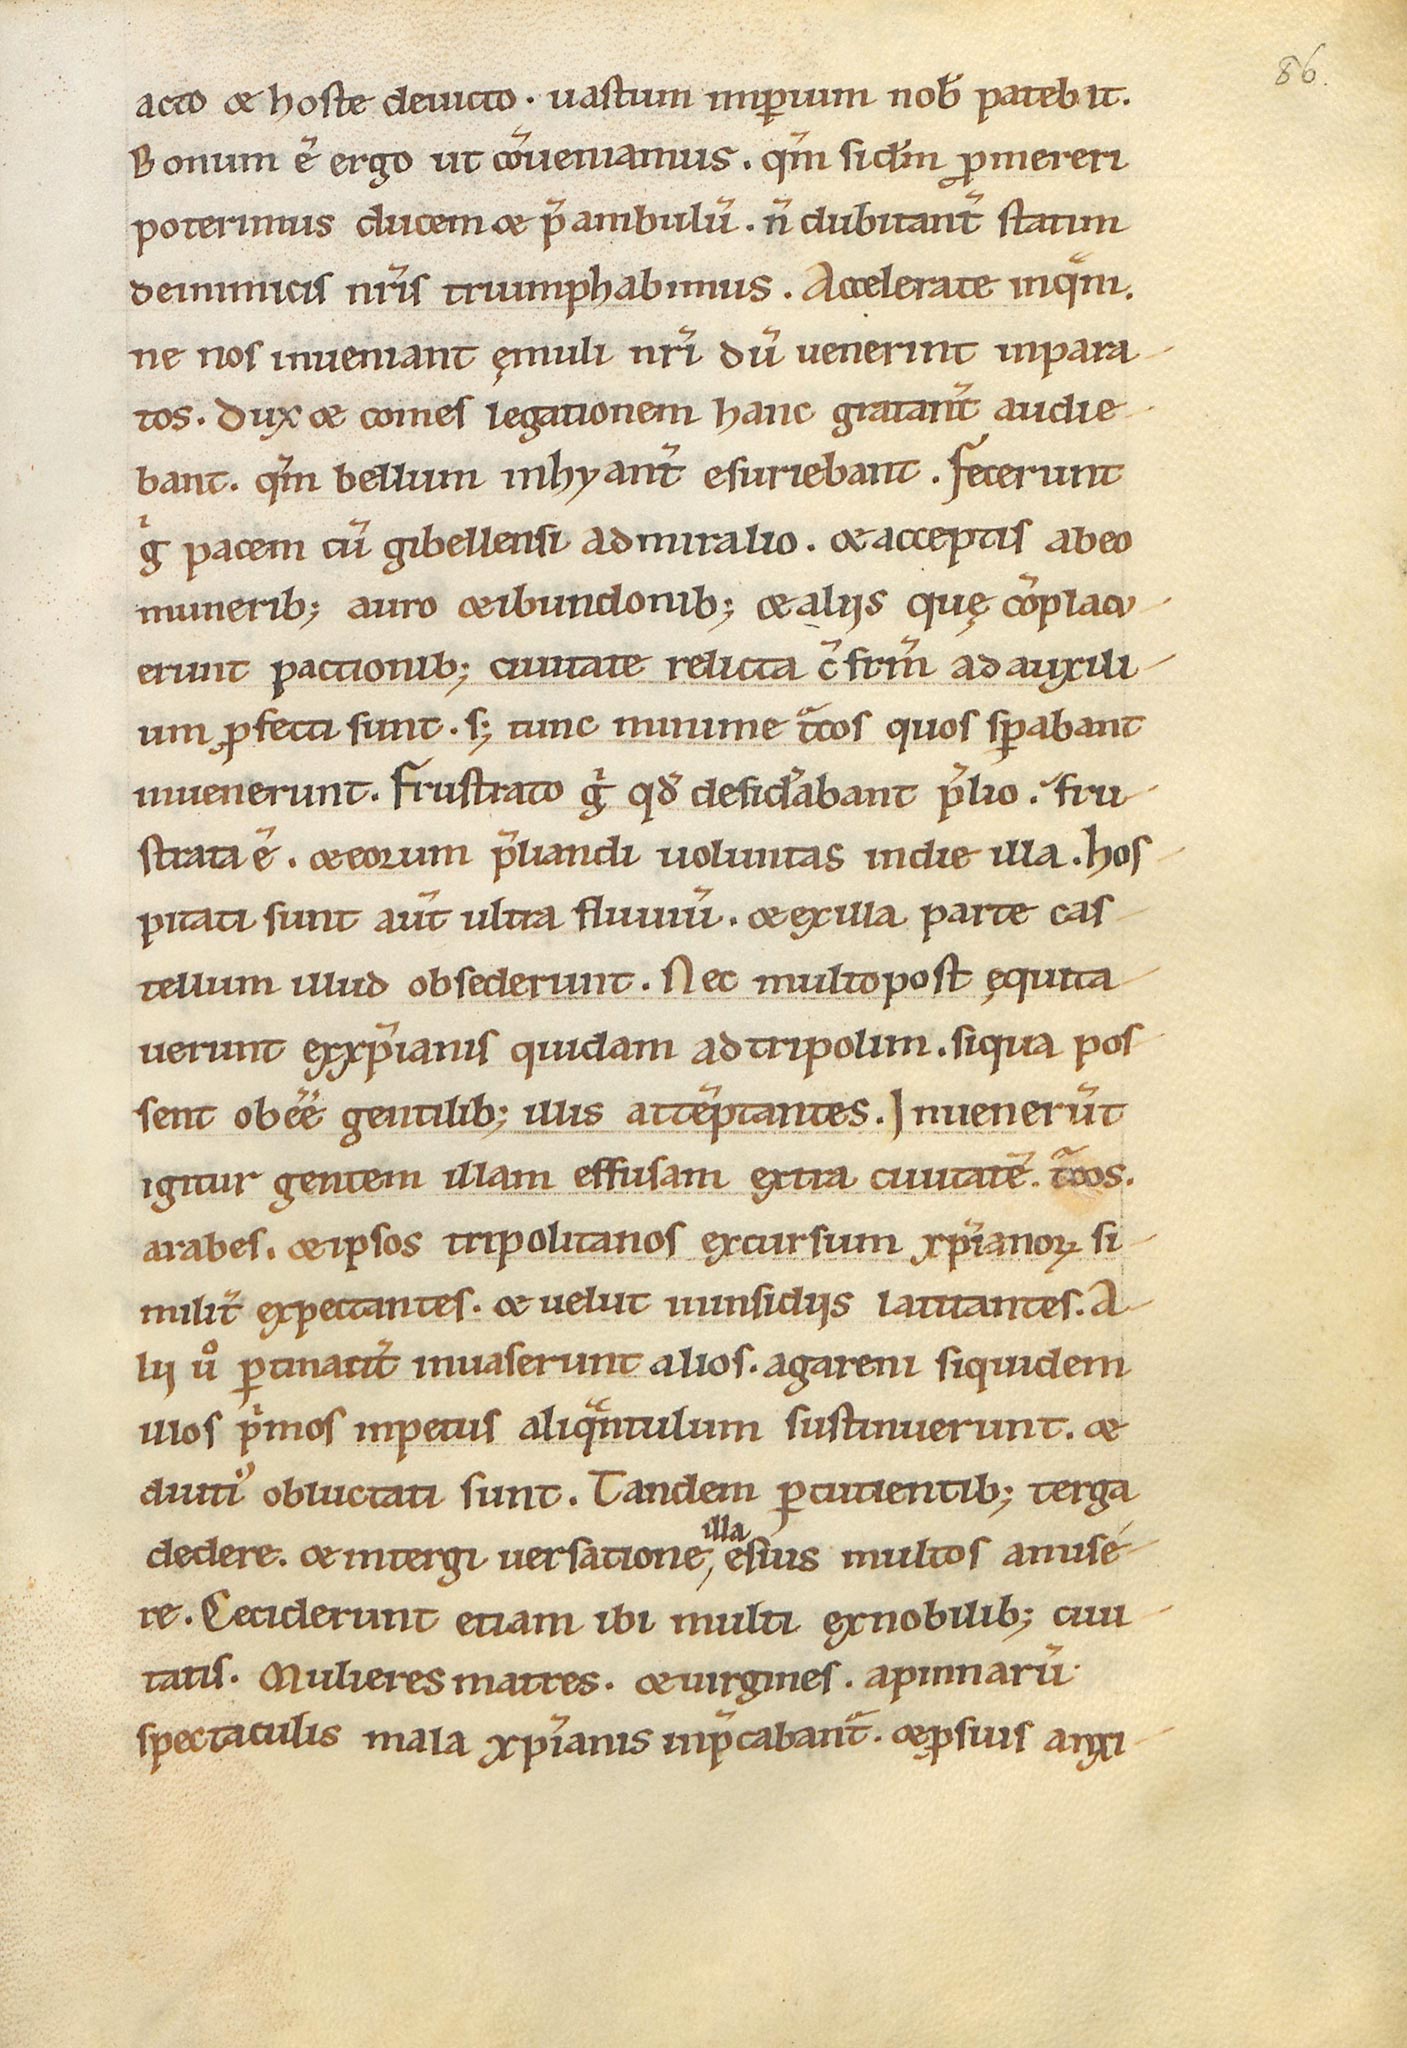 86.
acto & hoste deuicto. uastum imperium nob̄ patebit.
Bonum ē ergo ut cōueniamus. qm̄ si dm̄ ꝓmereri
poterimus ducem & p̄ambulū. n̄ dubitant̄ statim
deinimicis nr̄is triumphabimus. Accelerate inqᵃm.
ne nos inueniant ęmuli nr̄i dū uenerint inpara-
tos. Dux & comes legationem hanc gratant̄ audie-
bant. qm̄ bellum inhyant̄ esuriebant. Fecerunt
gͥ pacem cū gibellensi admiralio. & acceptis abeo
munerib; auro & ibundonib; & alijs quę cōplacu-
erunt pactionib; ciuitate relicta c̄ frm̄ ad auxili-
um ꝓfecti sunt. s; tunc minime tᵃcos quos sꝑabant
inuenerunt. Frustrato gͥ qd̄ desid̄abant p̄lio. fru-
strata ē. & eorum p̄liandi uoluntas indie illa. hos-
pitati sunt aut̄ ultra fluuiū. & exilla parte cas-
tellum illud obsederunt. Nec multopost ęquita-
uerunt exxp̄ianis quidam adtripolim. siqua pos-
sent obeē gentilib; illis attēptantes. Inuenerūt
igitur gentem illam effusam extra ciuitatē. tᵃcos.
arabes. & ipsos tripolitanos excursum xp̄ianoꝝ si-
milit̄ expectantes. & uelut ininsidijs latitantes. A-
lij uͦ ꝑtinacit̄ inuaserunt alios. agareni siquidem
illos pͥmos inpetus aliqᵃntulum sustinuerunt. &
diutiꝰ obluctati sunt. Tandem ꝑcutientib; terga
dedere. & intergi uersatione, illa esuis multos amise-
re. Ceciderunt etiam ibi multi exnobilib; ciui-
tatis. Mulieres matres. & uirgines. apinnarū
spectaculis mala xp̄ianis inp̄cabant̄. & ꝓsuis anxi-